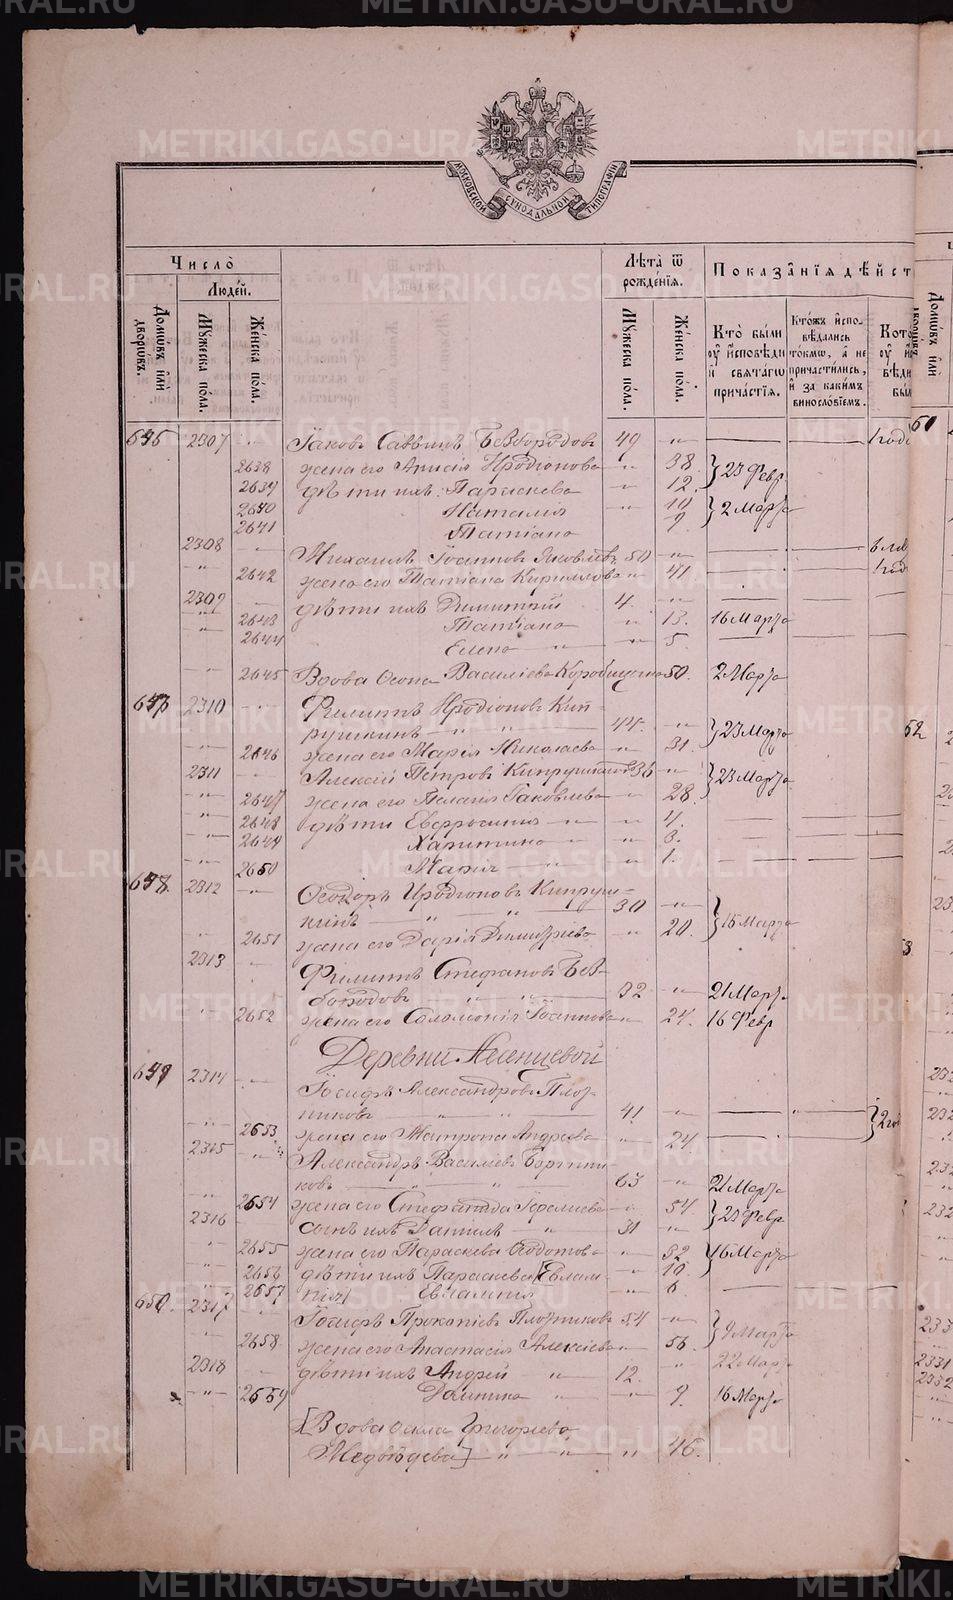 МОСКОВСКОЙ СѴНОДАЛЬНОЙ ТИПОГРАФІИ
Число̀
Людей.
Домѡвъ и҆лѝ дворѡвъ.
Мꙋжеска пола.
Же́нска по́ла.
Лѣта̀ ѿ рожде́нїѧ.
Мꙋжеска по́ла.
Же́нска по́ла.
Показа̑нїѧ дѣйст
Кто̀ бы́ли ᲂу҆ и҆сповѣди и҆ свѧта́гѡ прича́стїѧ.
Кто́жъ и҆спо-вѣдались то́кмѡ, а҆ не причасти́лись, и҆ за каки́мъ виносло́вїемъ.
646 2307 Іаковъ Саввинъ Бѣлобородовъ 49
2638 жена его Анисія Иродіонова 38 23 Февр
2639 дѣти ихъ: Параскева 12
2640 Наталія 10 2 Марта
2641 Татіана 9
2308 Михаилъ Іоанновъ Яковлевъ 50
2642 жена его Татіана Кириллова 41
2309 дѣти ихъ Димитрій 4
2643 Татіана 13 16 Марта
2644 Елена 5
2645 Вдова Васильева 50 2 Марта
647 2310 Филиппъ Иродіоновъ Кип-
рушкинъ 44 23 Марта
2646 жена его Марія Николаева 31
2311 Алексій Петровъ Кипрушкинъ 36 23 Марта
2647 жена его Пелагія Іаковлева 28
2648 дѣти Евфросинія 4
2649 Харитина 3
2650 Марія 1
648 2312 Ѳеодоръ Иродіоновъ Кипруш-
кинъ 30 15 Марта
2651 жена его Дарія Димитріева 20
2313 Филиппъ Стефановъ Бѣло-
бородовъ 32 21 Марта
2652 жена его Соломонія Іоаннова 24 16 Февр
Деревни
649 2314 Іосифъ Александровъ Плот-
никовъ 41
2653 жена его Матрона Андреева 24
2315 Александръ Васильевъ
ковъ 63 21 Марта
2654 жена его Стефанида 54 21 Февр
2316 Сынъ ихъ Даніилъ 31
2655 жена его Параскева Ѳедотова 32 16 Марта
2656 дѣти ихъ Параскева [Евлам- 10
2657 пія] Евлампія 6
650 2317 Іосифъ Прокопіевъ Плотниковъ 54 9 Марта
2658 жена его Анастасія Алексіева 56
2318 дѣти ихъ Андрей 12 22 Марта
2659 Домника 9 16 Марта
[Вдова Ѳекла Григорьева
Медвѣдева] 46